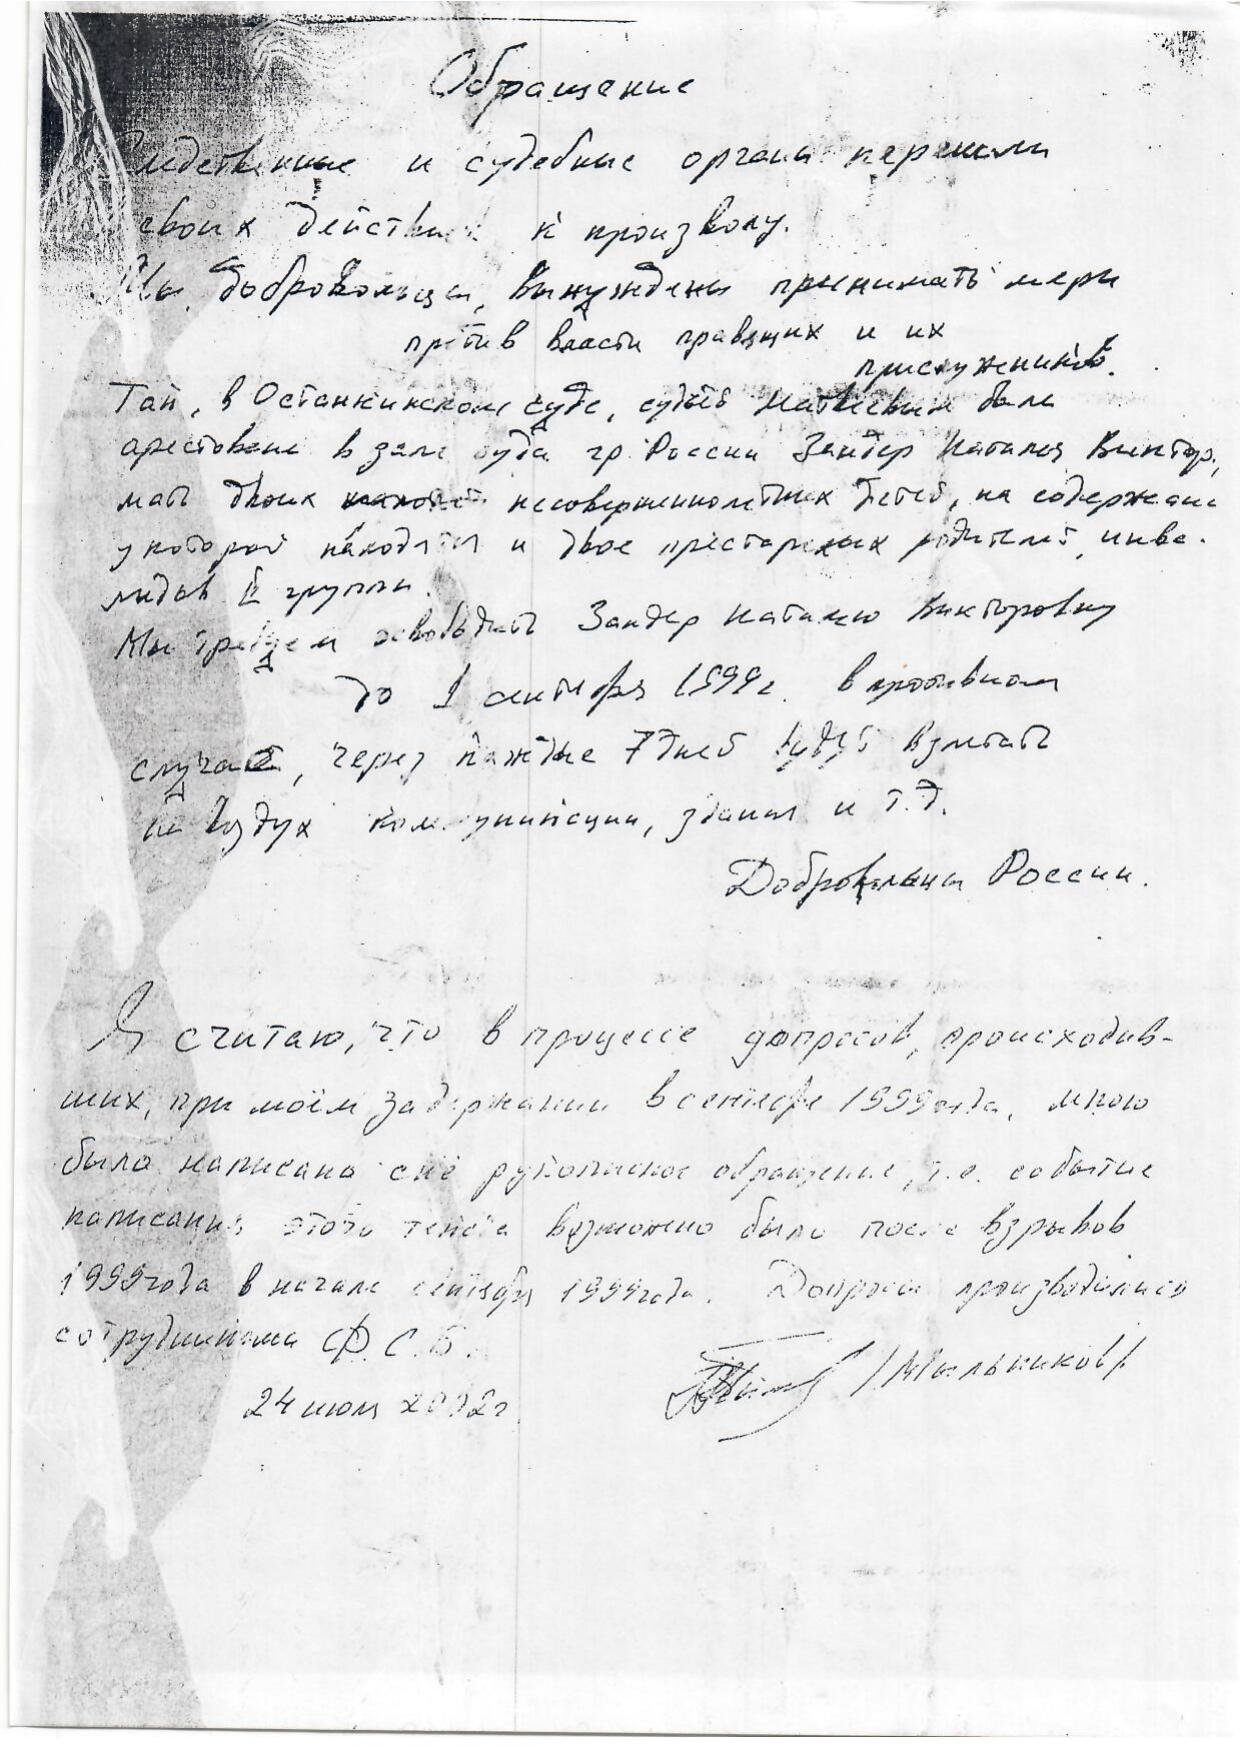 Обращение
Следственные и судебные органы перешли
своих действиях к произволу.
Мы, добровольцы, вынуждены принимать меры
против власти правящих и их
прислужников.
Так, в Останкинском суде, судьёй была
арестована в зале суда гр. России Зандер Наталия Виктор,
мать двоих несовершеннолетних детей, на содержание
у которой находятся и двое престарелых родителей, инва-
лидов II группы.
Мы требуем освободить Зандер Наталию Викторовну
до 1 сентября 1999г. в противном
случае, через каждые 7 дней будут взлетать
на воздух коммуникации, здания и т.д.
Добровольцы России.
Я считаю, что в процессе допросов, происходив-
ших, при моём задержании в сентябре 1999 года, мною
было написано сиё рукописное обращение, т.е. событие
написания этого текста возможно было после взрывов
1999года в начале сентября 1999года. Допросы производились
сотрудниками Ф.С.Б.
24 июля 2002г /Мыльников/